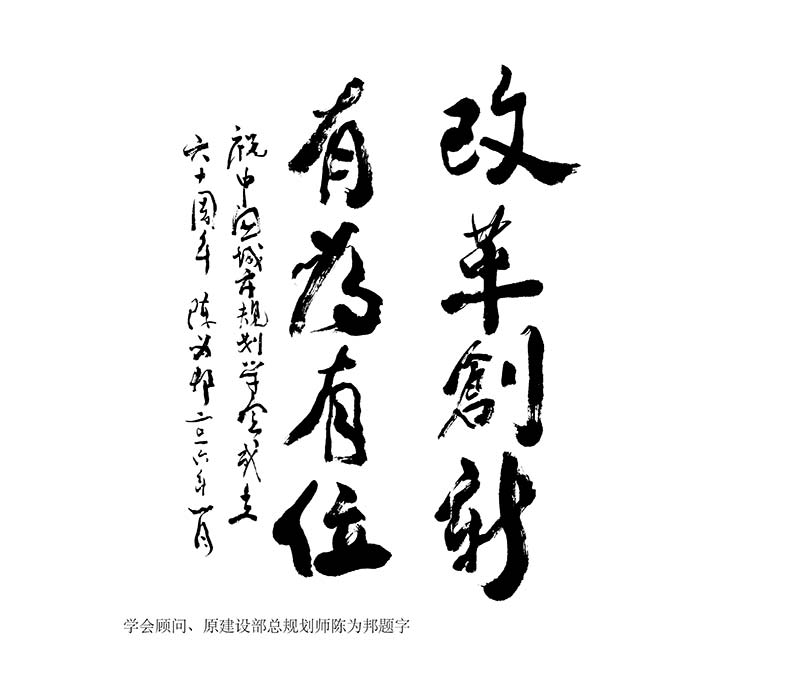 改革創新
有为有位
祝中国城市规划学会成立
六十周年 陈为邦 二〇一六年一月
学会顾问、原建设部总规划师陈为邦题字